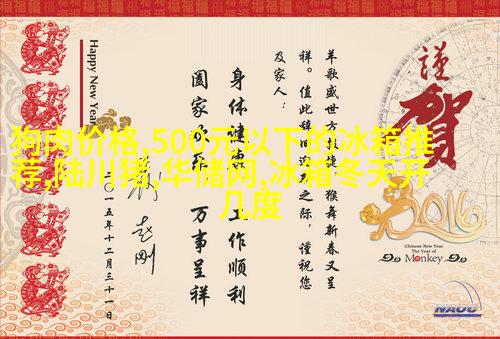 狗肉价格,500元以下的冰箱推
荐,陆川猪,华储网,冰箱冬天开
几度
谨
贺
2016
Chinese New Year
The Year of
Monkey
NAOC
羊歌盛世方 猴舞新春又呈
祥。值此辞旧 之际，谨祝您
及家人：
身体健康 工作顺利
阖家欢乐 万事呈祥
二〇一五年十二月三十一日
Happy New Year